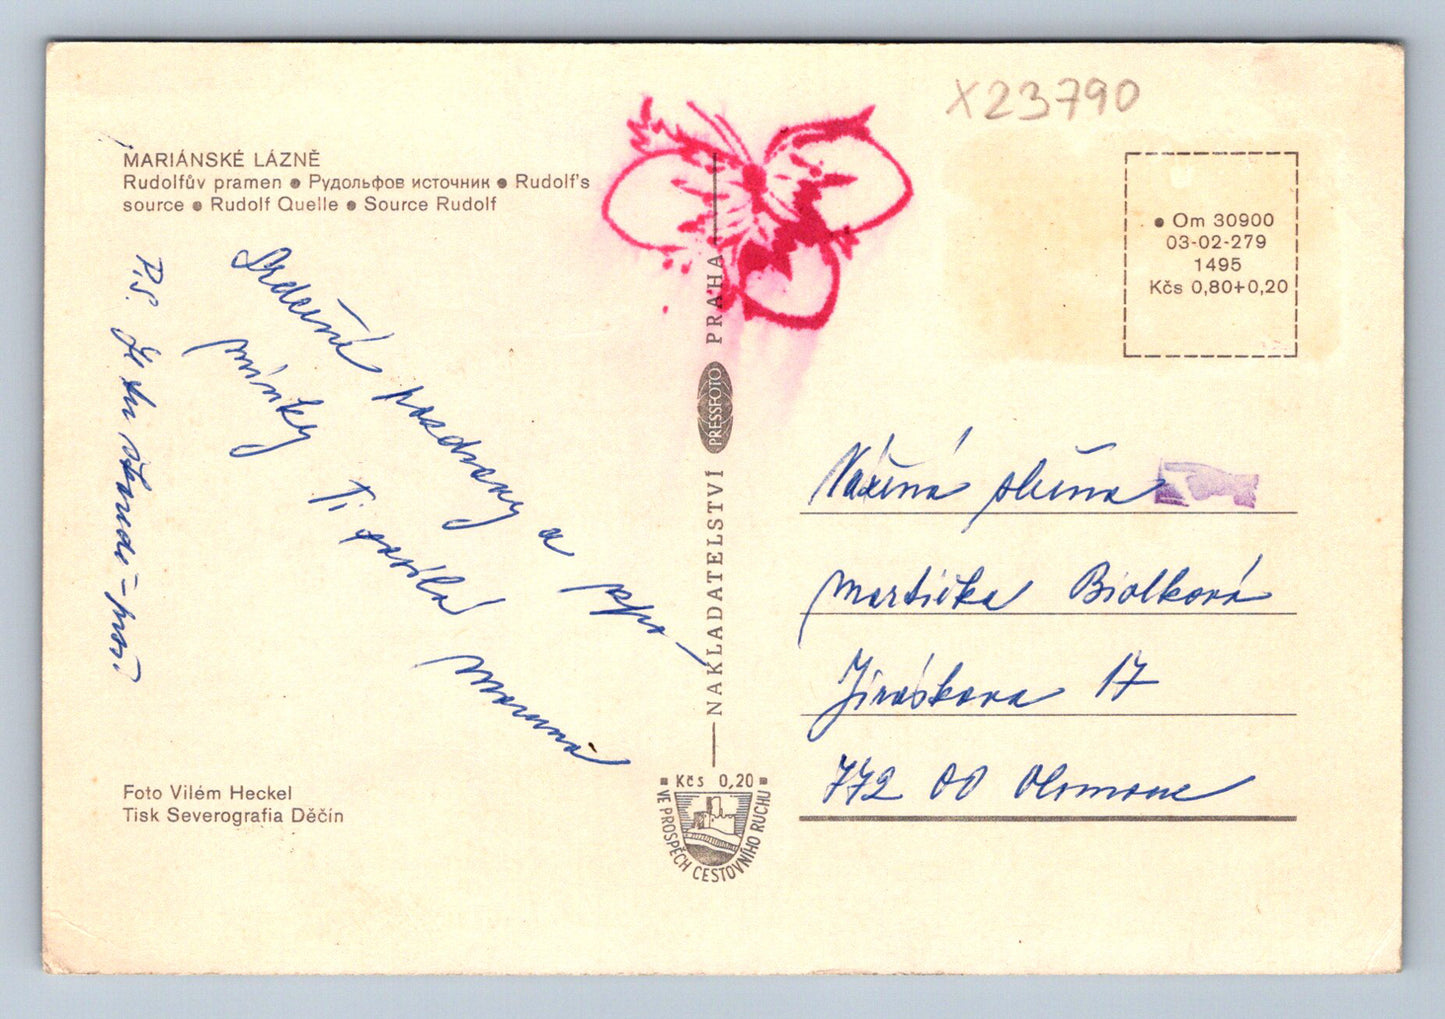 X23790
MARIÁNSKÉ LÁZNĚ
Rudolfův pramen • Рудольфов источник • Rudolf's
source • Rudolf Quelle • Source Rudolf
• Om 30900
03-02-279
1495
Kčs 0,80+0,20
Srdečné pozdravy a vzpo-
mínky
Ti posílá
P.S.
NAKLADATELSTVÍ PRESSFOTO PRAHA
Vážená slečna
Martička Biolková
Jiráskova 17
772 00 Olomouc
Foto Vilém Heckel
Tisk Severografia Děčín
Kčs 0,20
VE PROSPĚCH CESTOVNÍHO RUCHU